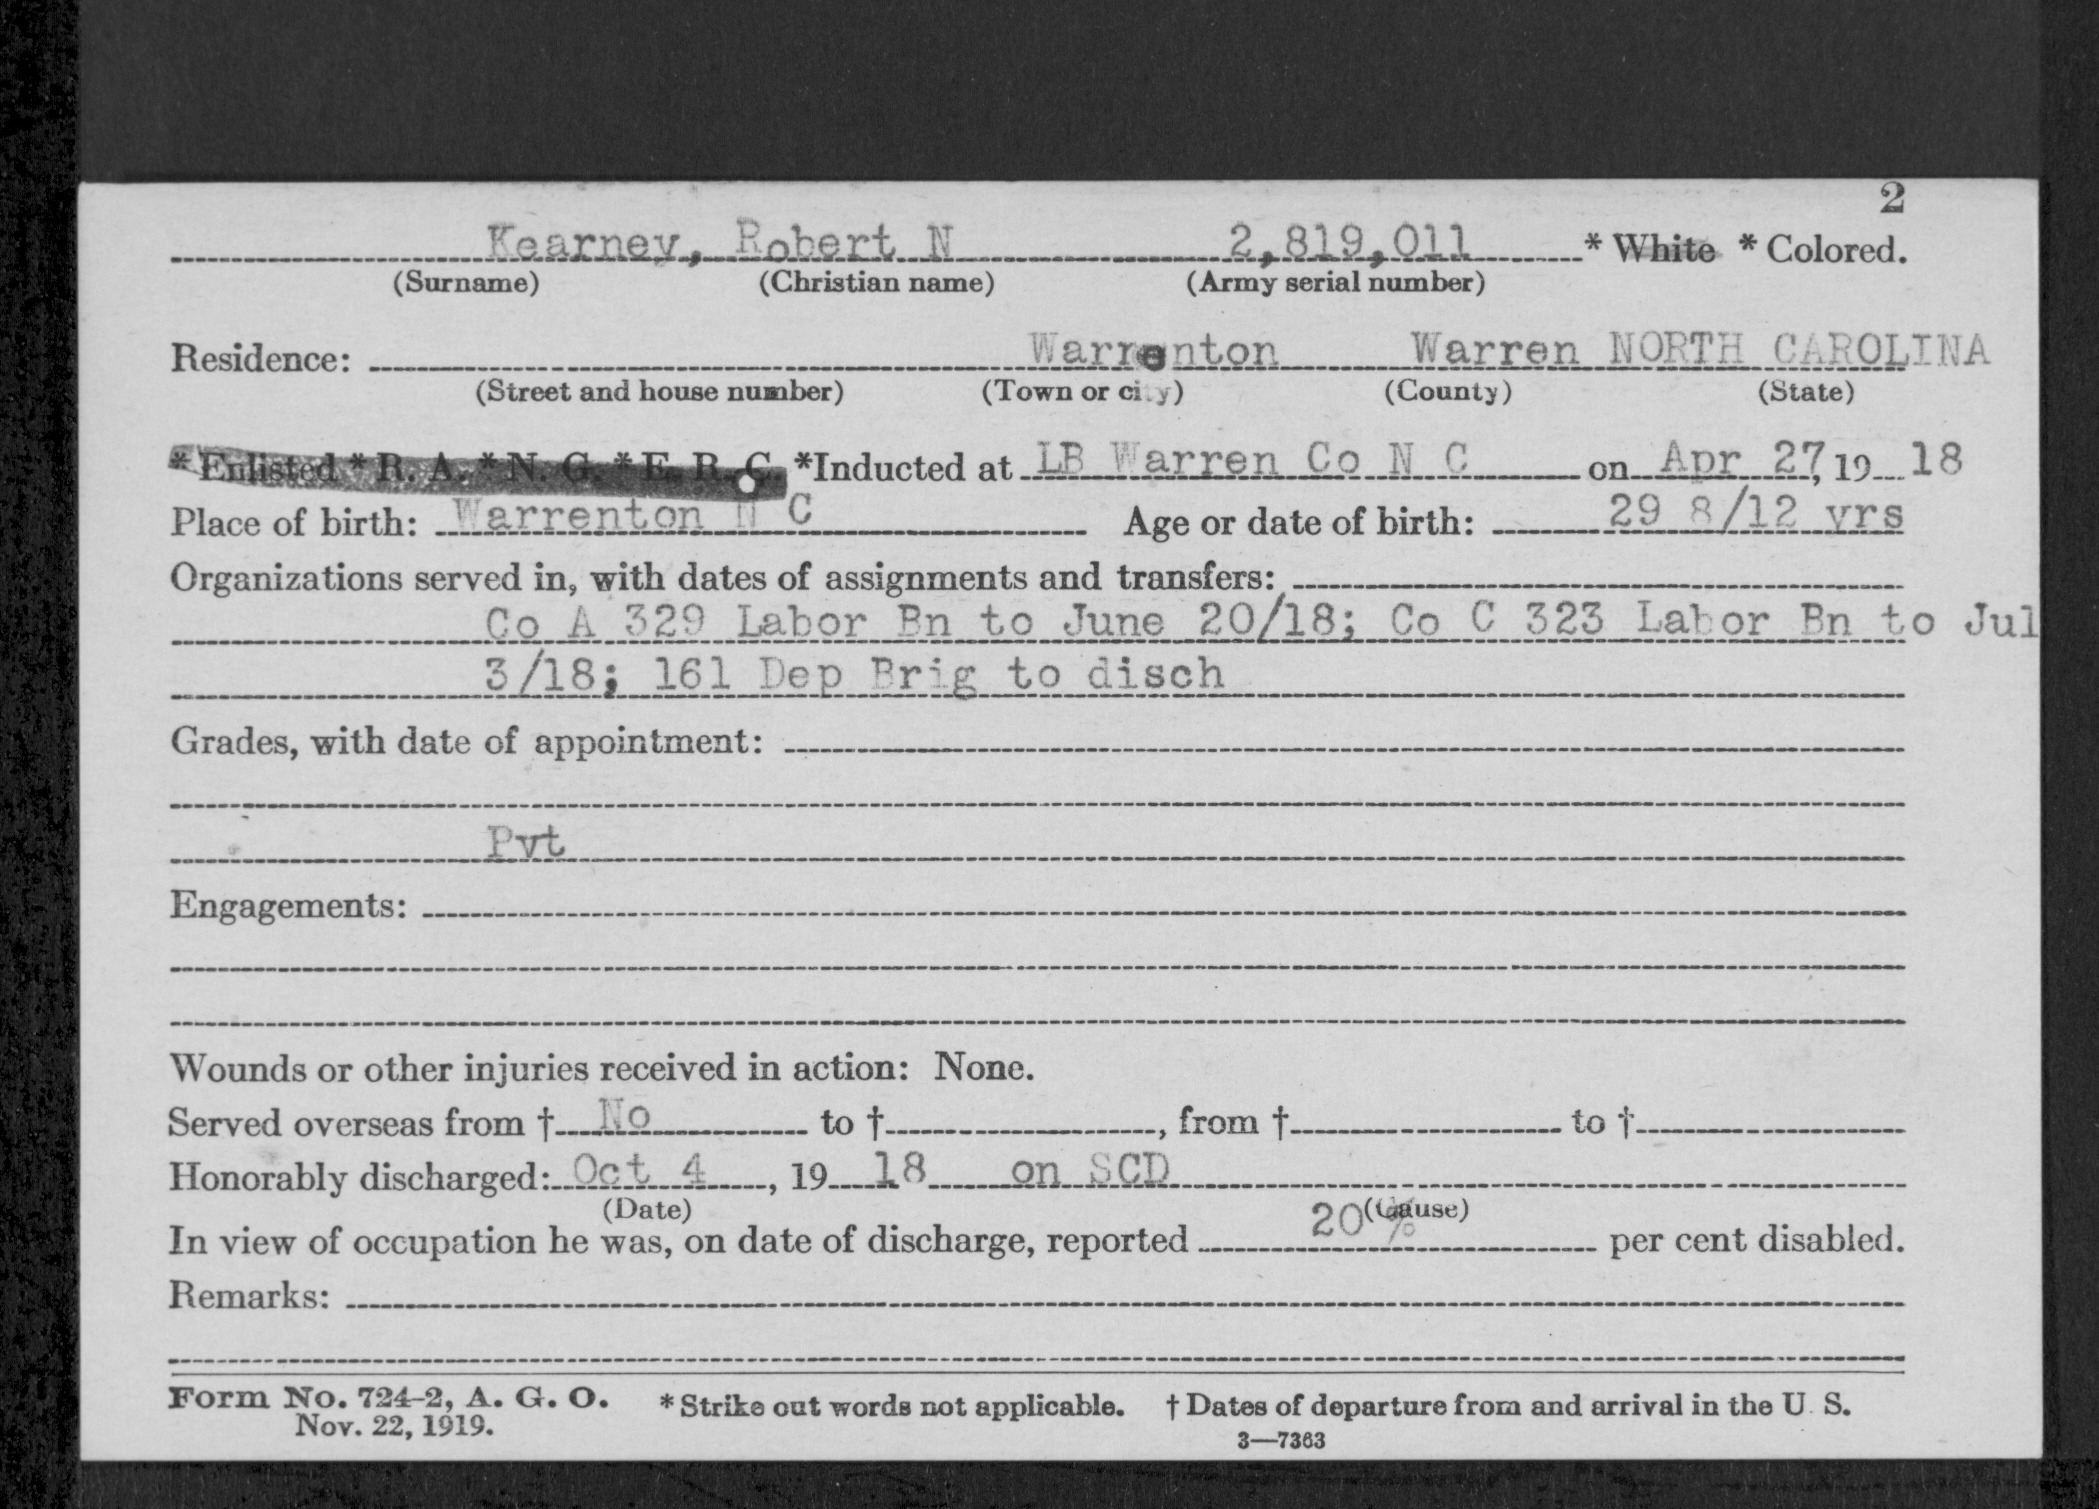 2
Kearney, Robert N 2,819,011 * White * Colored.
(Surname) (Christian name) (Army serial number)
Residence: Warrenton Warren NORTH CAROLINA
(Street and house number) (Town or city) (County) (State)
* Enlisted * R. A. * N. G. * E. R. C. *Inducted at LB Warren Co N C on Apr 27, 19 18
Place of birth: Warrenton N C Age or date of birth: 29 8/12 yrs
Organizations served in, with dates of assignments and transfers:
Co A 329 Labor Bn to June 20/18; Co C 323 Labor Bn to Jul
3/18; 161 Dep Brig to disch
Grades, with date of appointment:
Pvt
Engagements:
Wounds or other injuries received in action: None.
Served overseas from † No to †, from † to †
Honorably discharged: Oct 4, 19 18 on SCD
(Date) (Cause)
In view of occupation he was, on date of discharge, reported 20 % per cent disabled.
Remarks:
Form No. 724-2, A. G. O. * Strike out words not applicable. † Dates of departure from and arrival in the U. S.
Nov. 22, 1919. 3—7363